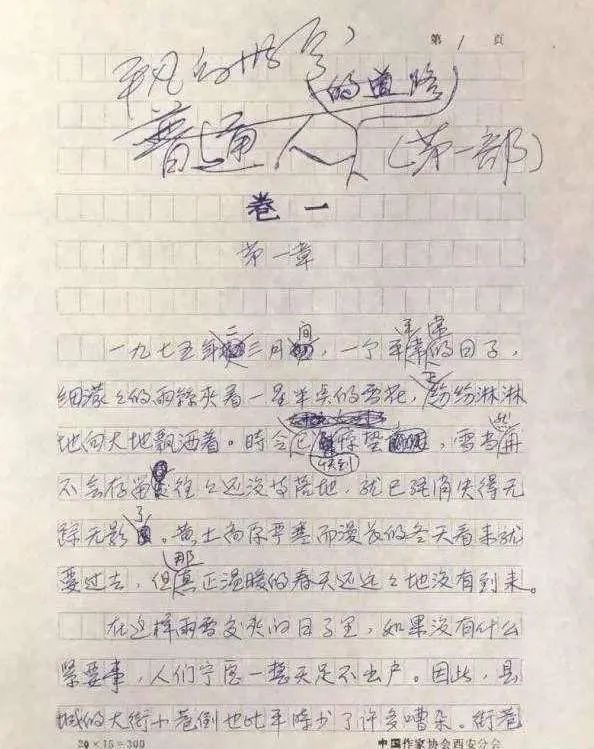 第 1 页
平凡的世界
的道路
普通人
(第一部)
卷一
第一章
一九七五年二三月间,一个平常的日子,
细濛々的雨丝夹着一星半点的雪花,正纷纷淋淋
地向大地飘洒着。時令已快到惊蛰,雪当然再
不会存留,往々还没等落地,就已经消失得无
踪无影了。黄土高原严寒而漫长的冬天看来就
要过去,但那真正温暖的春天还远々地没有到来。
在这样雨雪交夹的日子里,如果没有什么
紧要事,人们宁愿一整天足不出户。因此,县
城的大街小巷倒也比平時少了许多嘈杂。街巷
20×15=300 中国作家协会西安分会